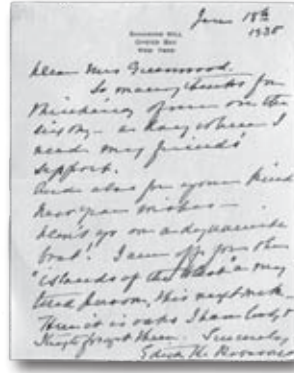 June 18th
1935
SAGAMORE HILL
OYSTER BAY
NEW YORK
Dear Mrs Greenwood.
So many thanks for
thinking of me on the
sixth - a day when I
need my friends'
support.
And also for your kind
New Year wishes -
on a
boat! I am off for the
"islands of the
tired person, this next week.
There it is
forget them. Sincerely
Edith K. Roosevelt